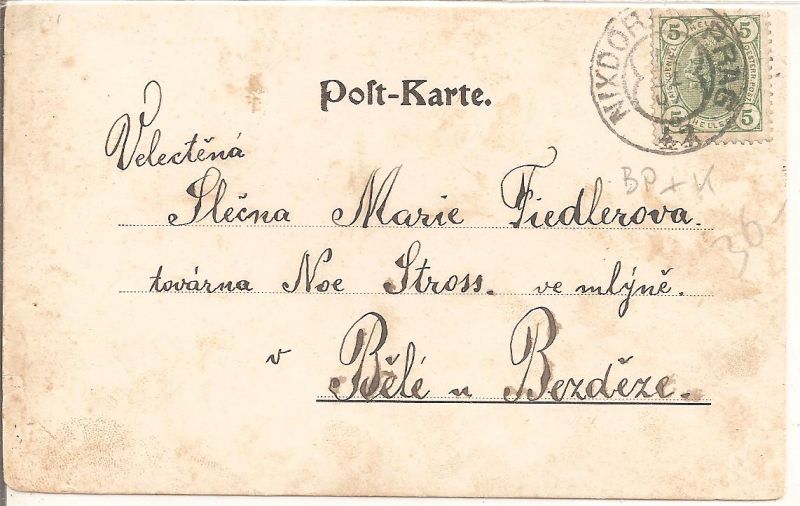 NIXDORF PRAG
5 HELLER 5
5 HELLER 5
Post-Karte.
Velectěná
BP + K
Slečna Marie Fiedlerova.
36
továrna Noe Stross. ve mlýně.
v Bělé u Bezděze.